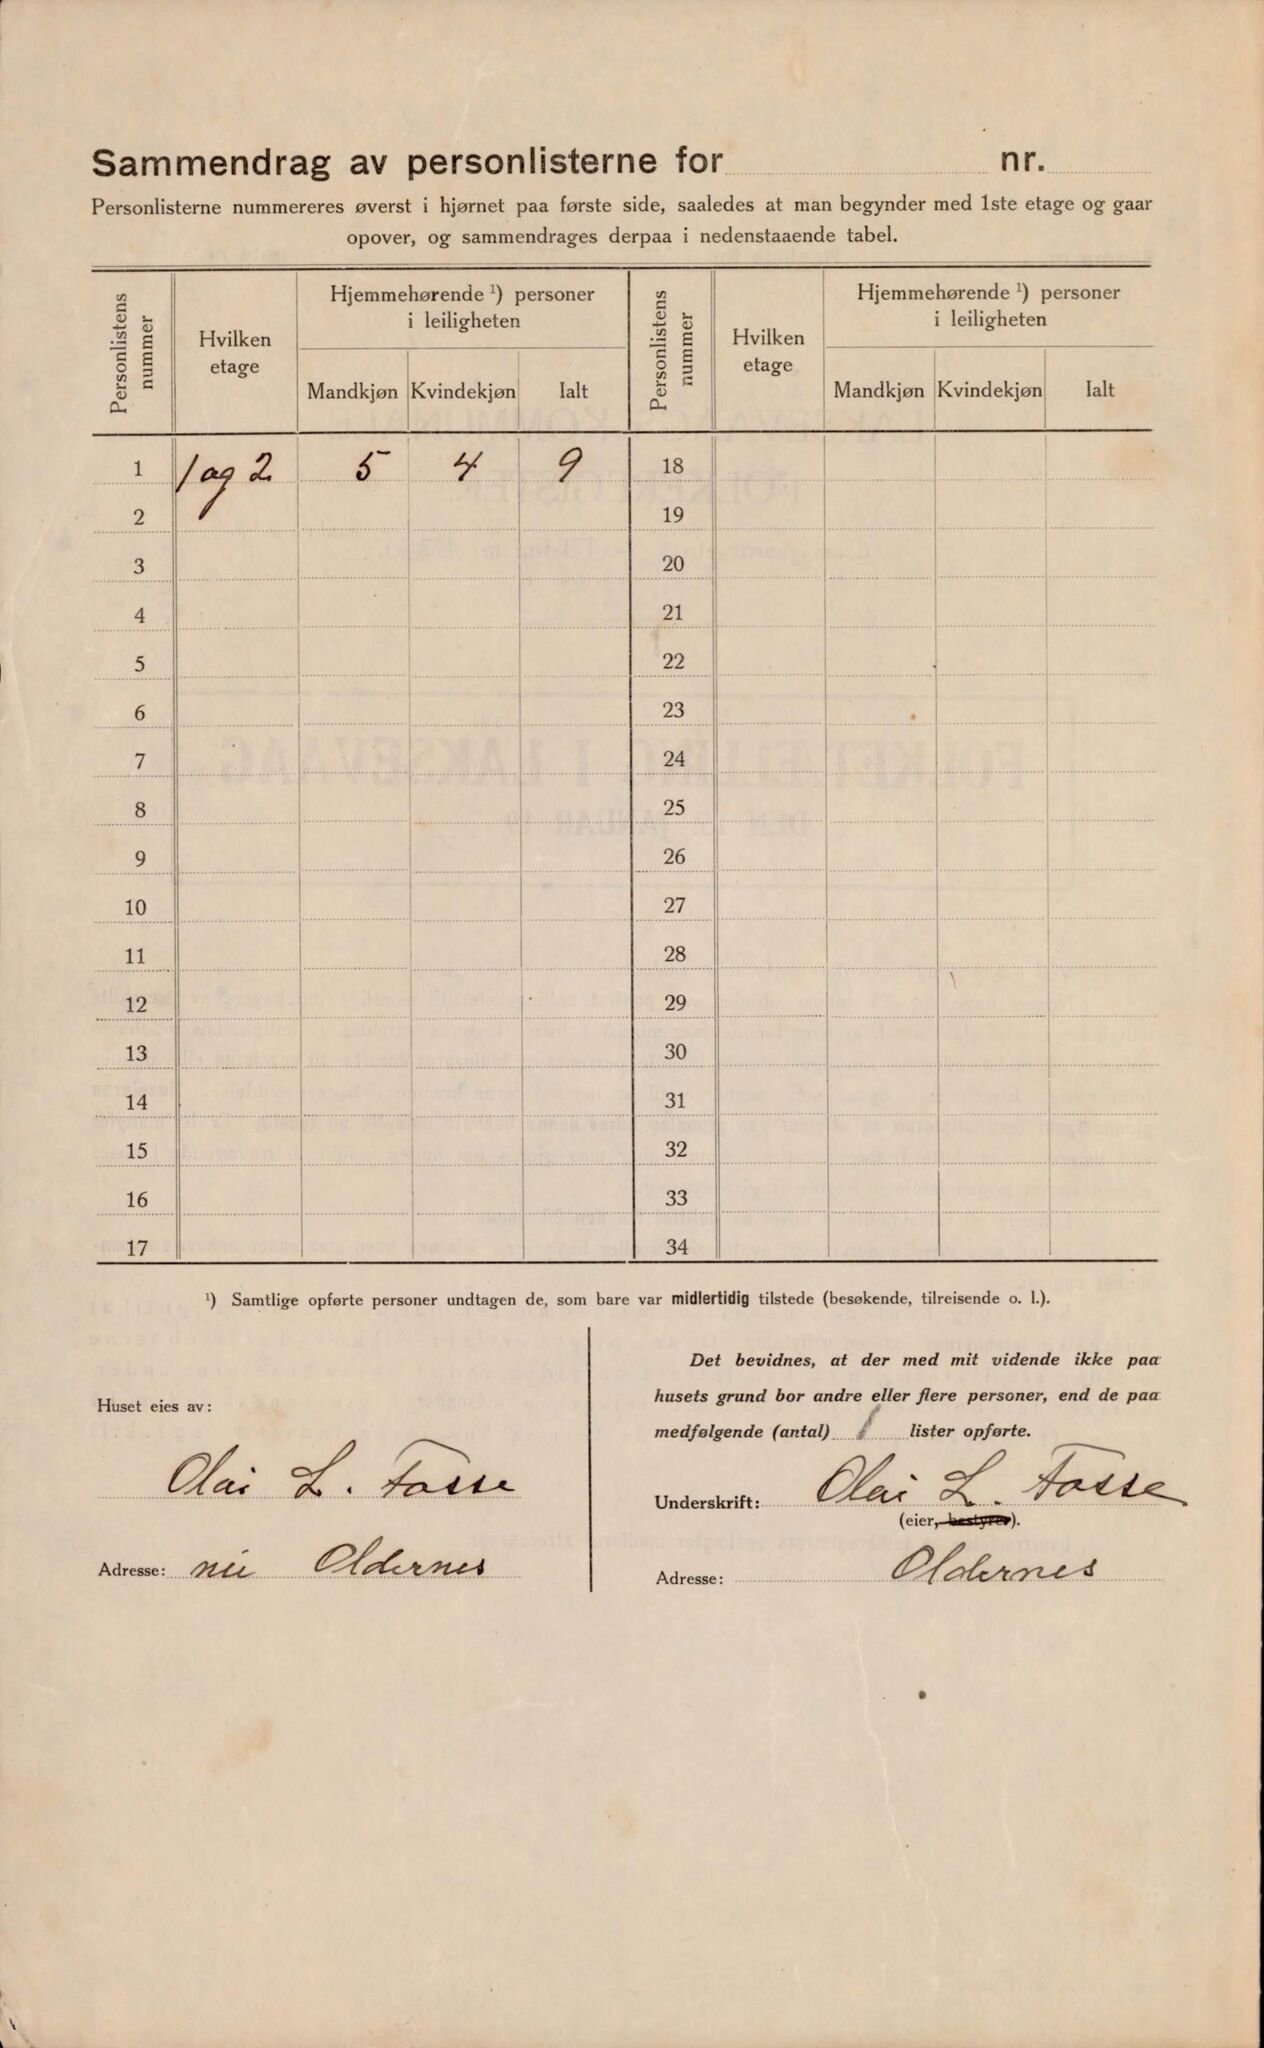 Sammendrag av personlisterne for nr.
Personlisterne nummereres øverst i hjørnet paa første side, saaledes at man begynder med 1ste etage og gaar
opover, og sammendrages derpaa i nedenstaaende tabel.
Personlistens nummer | Hvilken etage | Hjemmehørende ¹) personer i leiligheten | Personlistens nummer | Hvilken etage | Hjemmehørende ¹) personer i leiligheten
Mandkjøn | Kvindekjøn | Ialt | Mandkjøn | Kvindekjøn | Ialt
1 | 1 og 2 | 5 | 4 | 9 | 18
2 | 19
3 | 20
4 | 21
5 | 22
6 | 23
7 | 24
8 | 25
9 | 26
10 | 27
11 | 28
12 | 29
13 | 30
14 | 31
15 | 32
16 | 33
17 | 34
¹) Samtlige opførte personer undtagen de, som bare var midlertidig tilstede (besøkende, tilreisende o. l.).
Huset eies av:
Olai L. Fosse
Adresse: Oldernes
Det bevidnes, at der med mit vidende ikke paa
husets grund bor andre eller flere personer, end de paa
medfølgende (antal) 1 lister opførte.
Underskrift: Olai L. Fosse
(eier, bestyrer).
Adresse: Oldernes